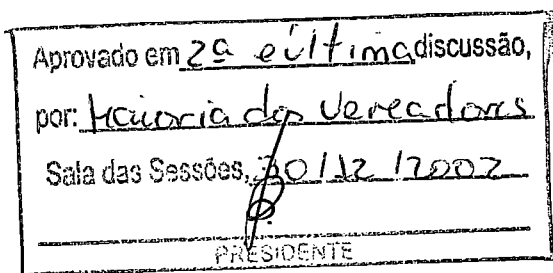 Aprovado em 2ª e última discussão,
por: Maioria dos Vereadores
Sala das Sessões, 30/12/2002
PRESIDENTE